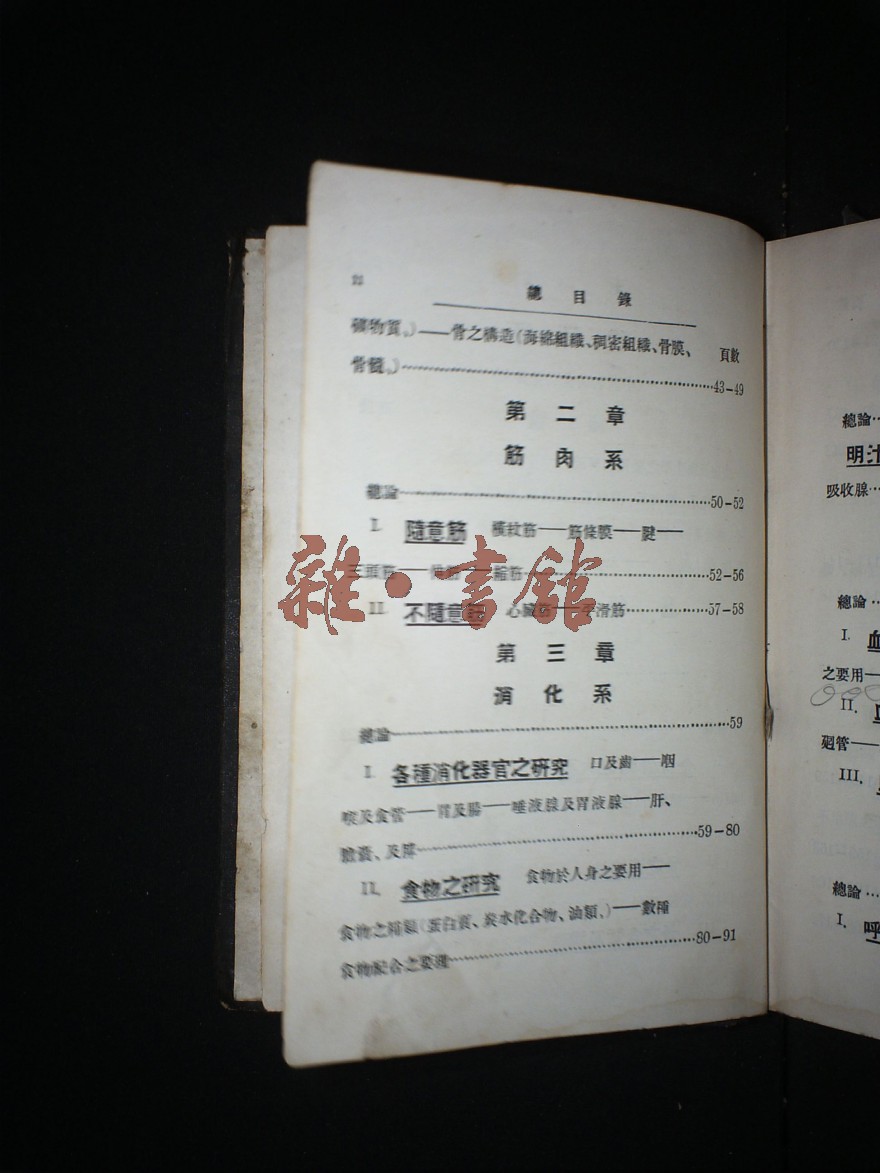 總目錄
頁數
礦物質、)——骨之構造(海綿組織、稠密組織、骨膜、
骨髓、)……43-49
第二章
筋肉系
總論……50-52
I. 隨意筋 橫紋筋——筋條膜——腱——
三頭筋……52-56
II. 不隨意 心臟筋——平滑筋……57-58
第三章
消化系
總論……59
I. 各種消化器官之研究 口及齒——咽
喉及食管——胃及腸——唾液腺及胃液腺——肝、
膽囊、及脾……59-80
II. 食物之研究 食物於人身之要用——
食物之種類(蛋白質、炭水化合物、油類、)——數種
食物配合之要理……80-91
雜·書館
總論…
明汁
吸收腺…
總論…
I. 血
之要用—
II.
廻管—
III.
總論…
I. 呼